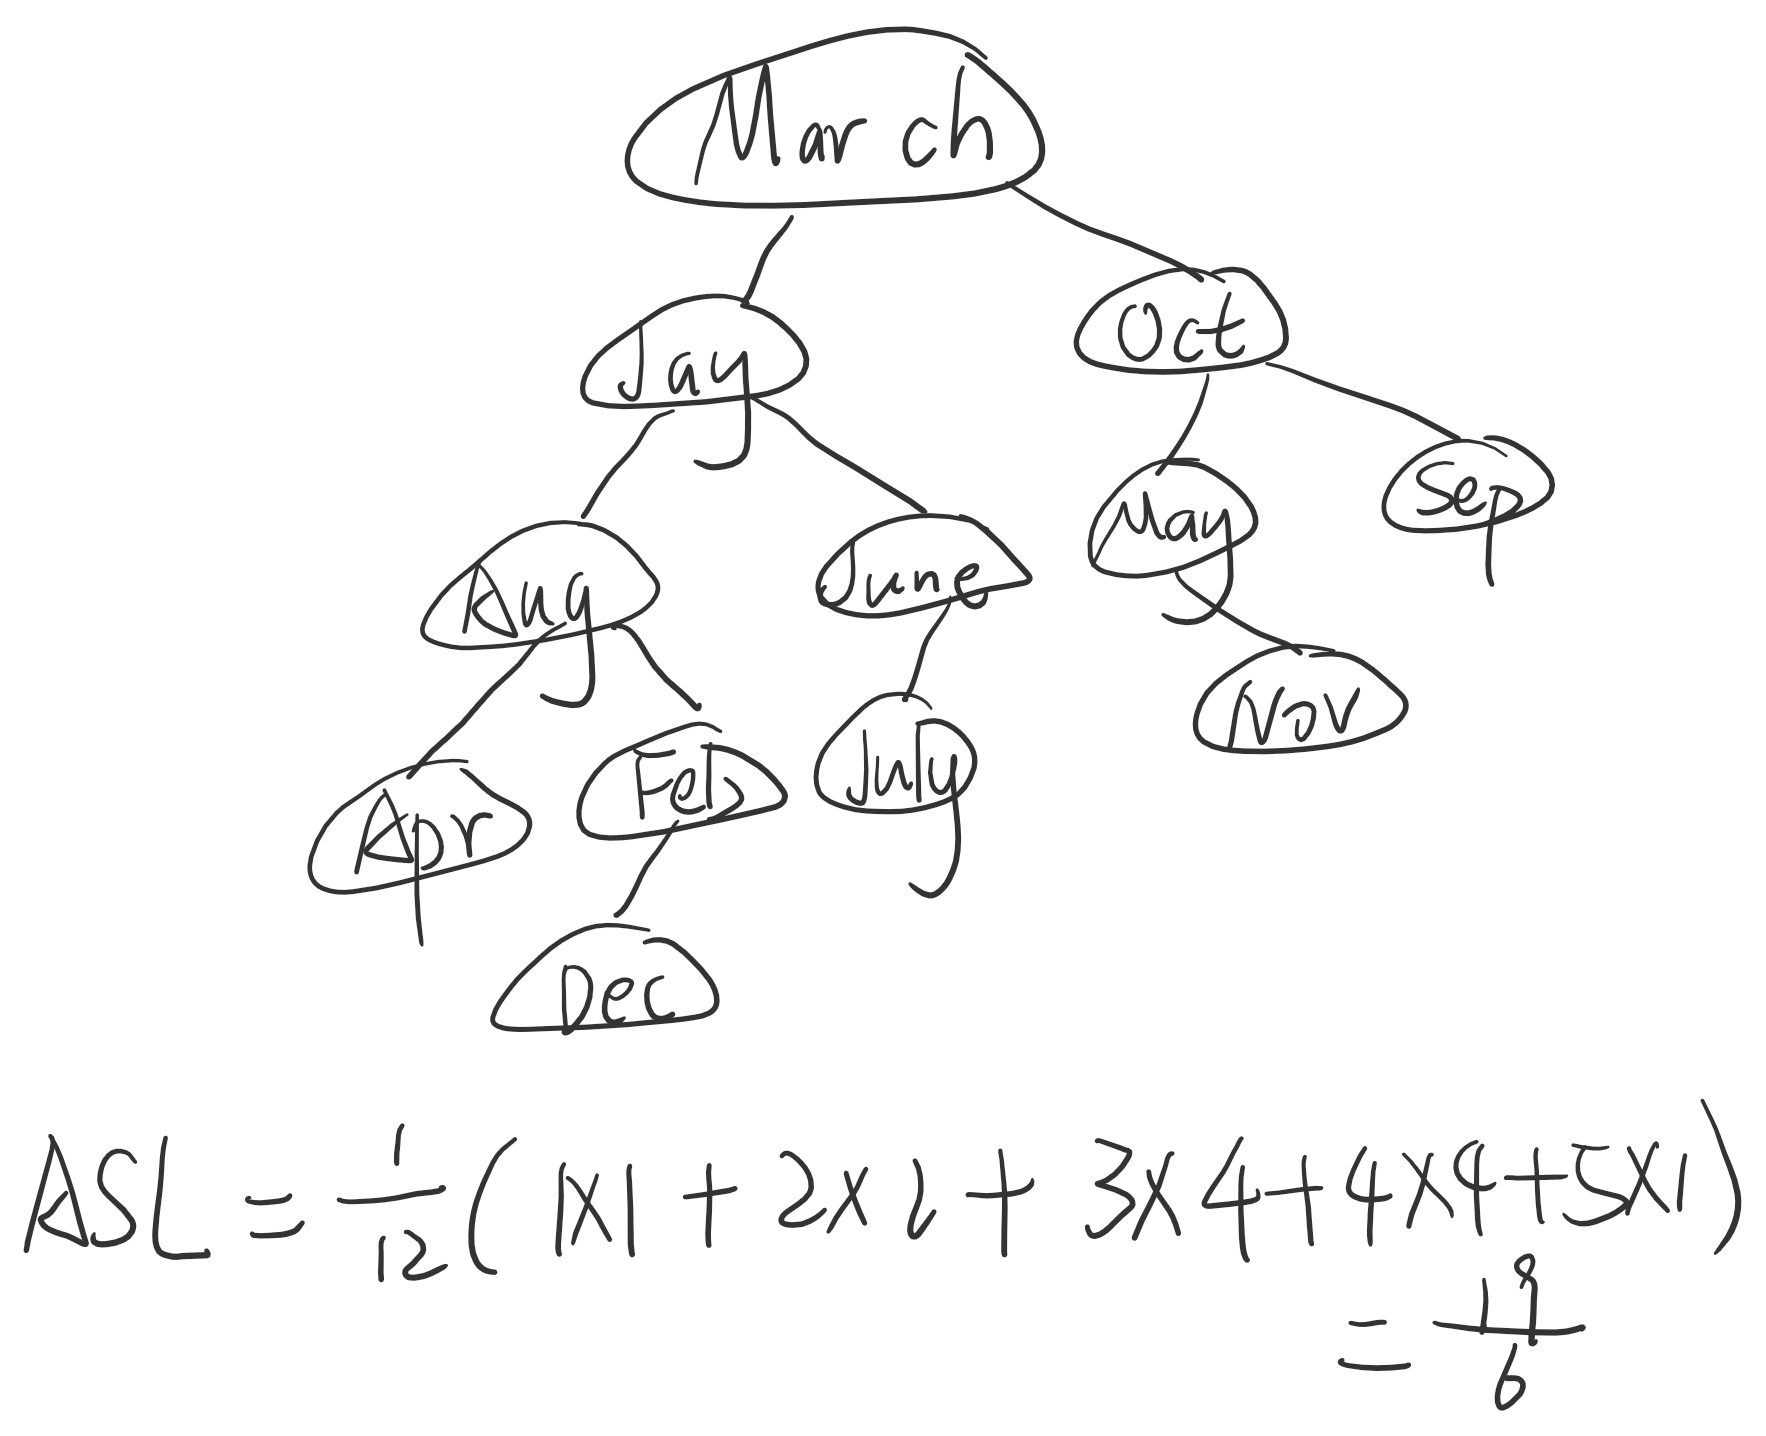 March
Jay
Oct
Aug
June
May
Sep
Apr
Feb
July
Nov
Dec
ASL = 1/12 ( 1×1 + 2×2 + 3×4 + 4×4 + 5×1 )
= 19/6